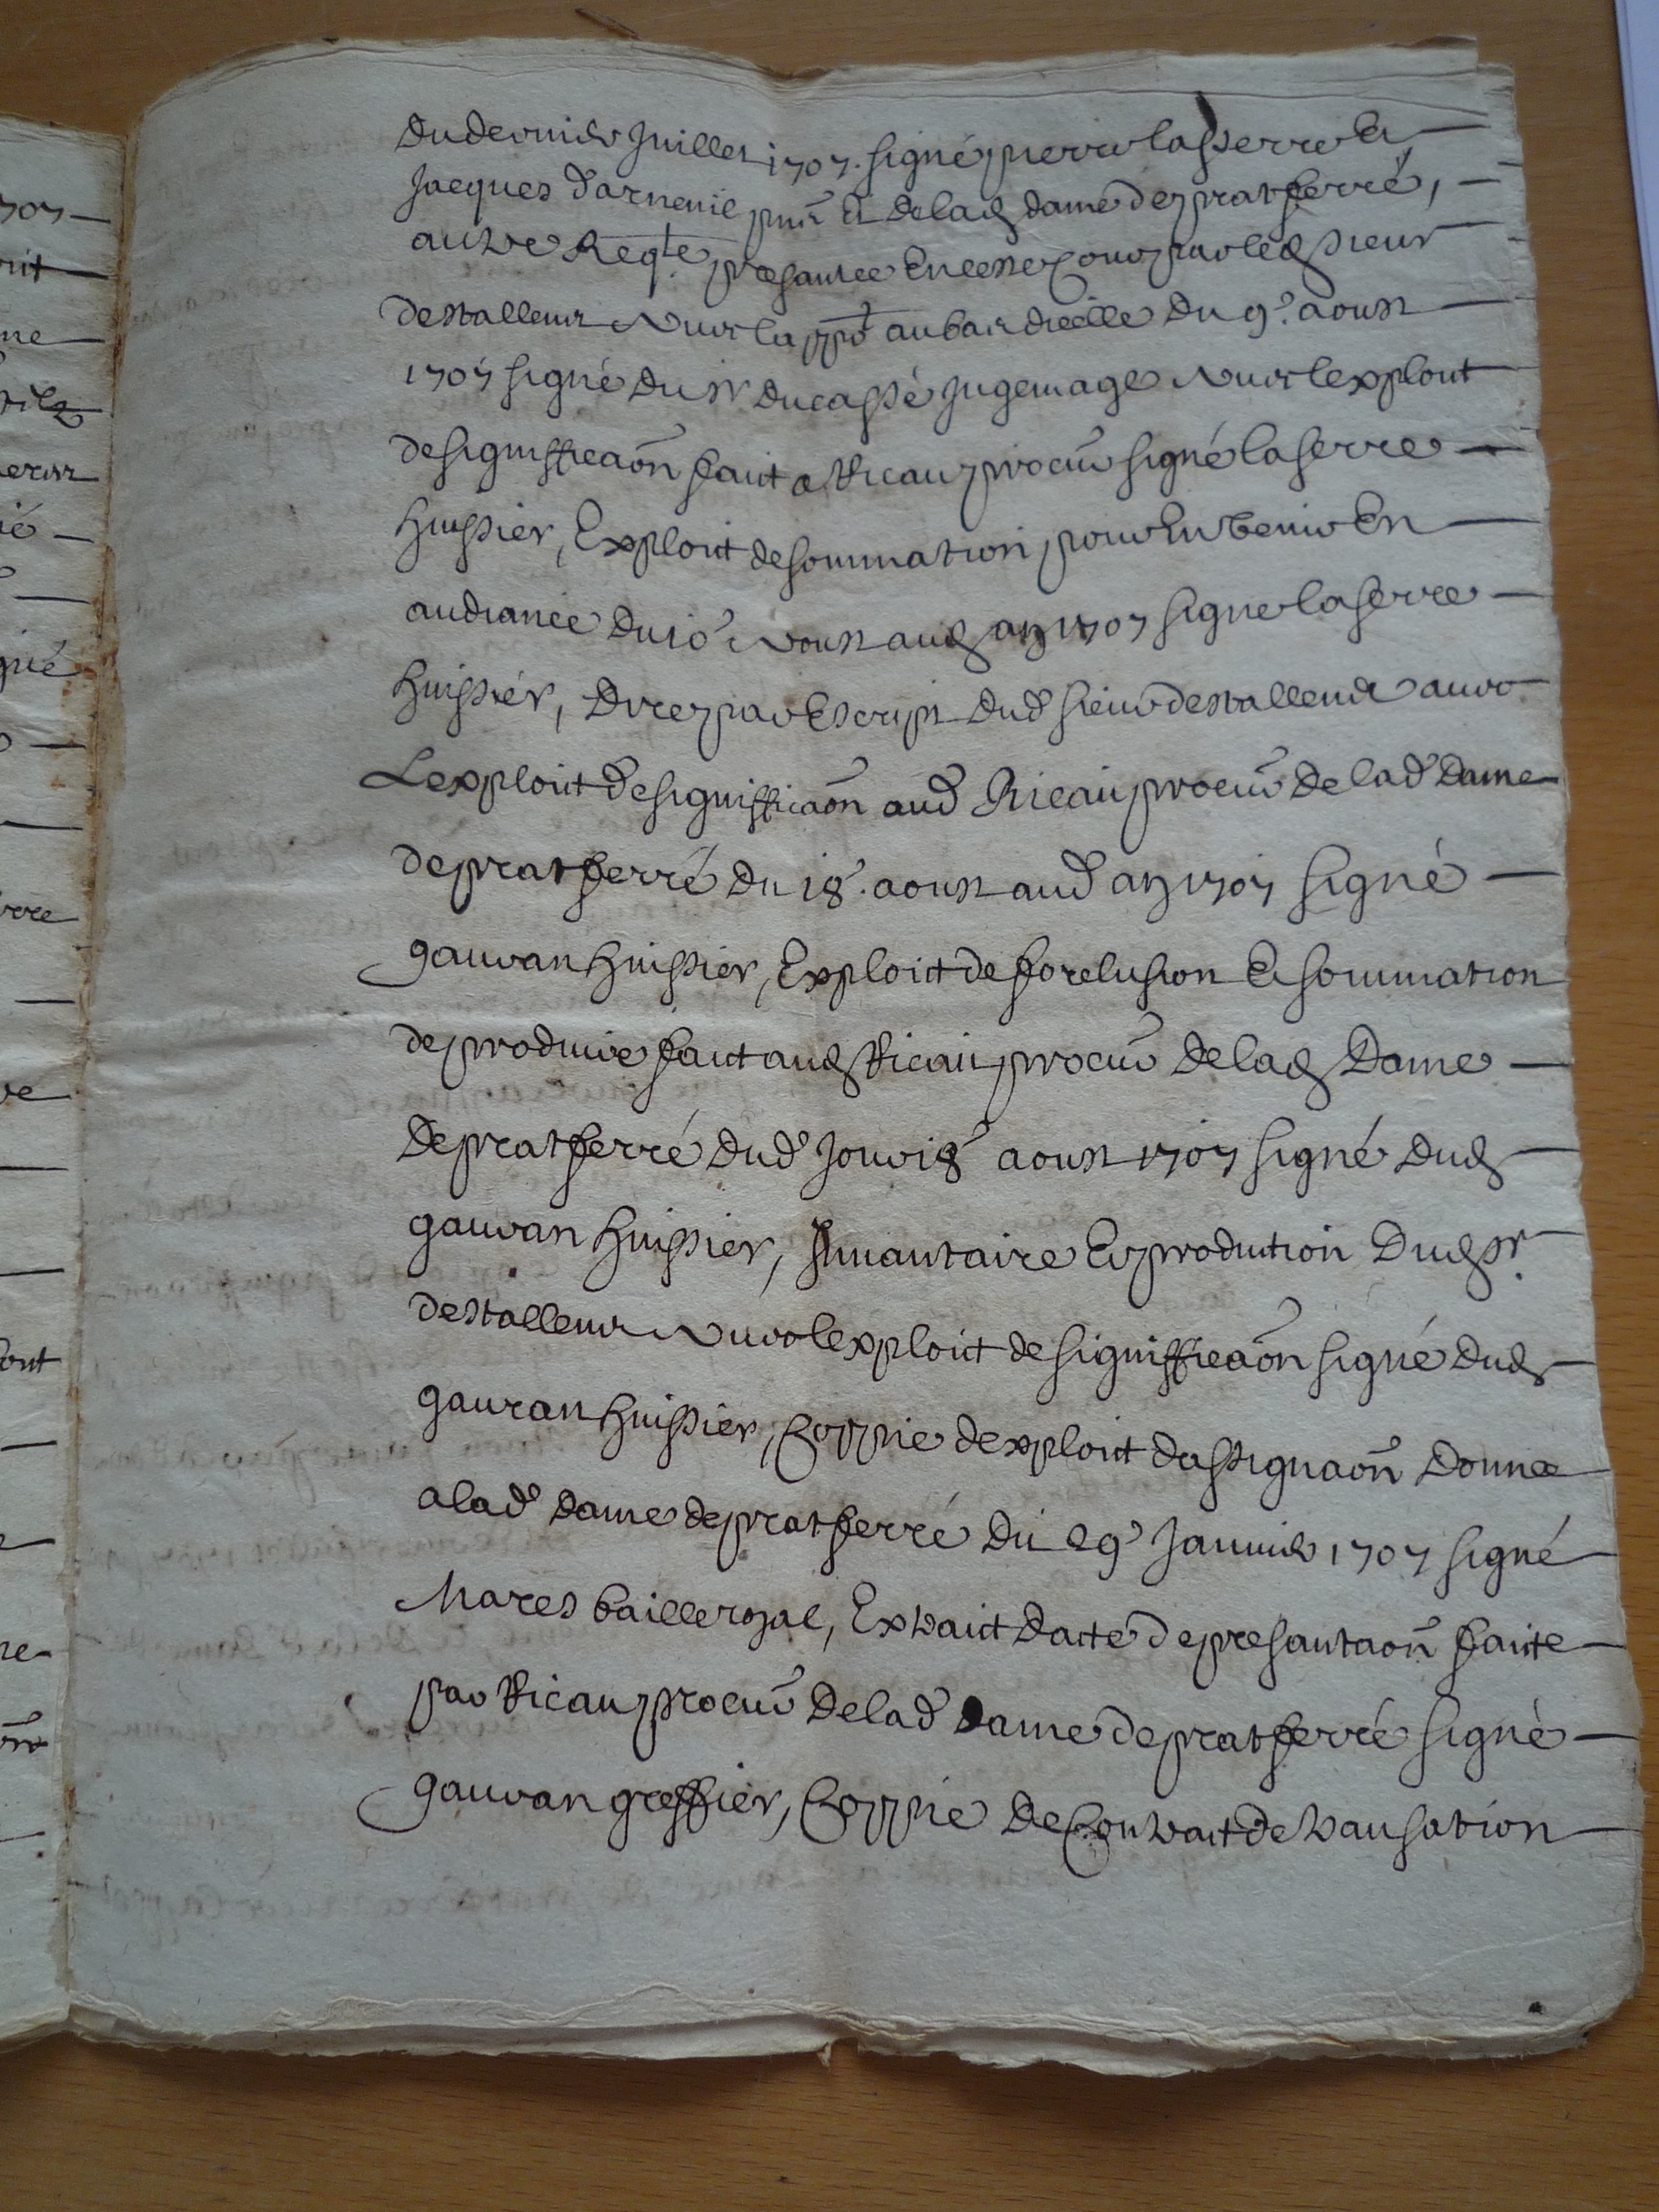 Du dernier Juillet 1707. signé pierre lasserre Et
Jacques d'arnenie pnt Et de lad dame de pratferré,
autre Reqte presantee En ceste cour par led sieur
destalleur avec la ppt au bas dicelle Du 9e aoust
1707 signé du sr ducasse Juge mage avec lexploit
de signifficaon fait a Ricau procur signé laserre
huissier, Exploit de sommation pour En venir En
audiance du 10e aoust aud an 1707 signe laserre
huissier, Dire par Escript dud sieur destalleur avec
Lexploit de signifficaon aud Ricau procur de lad Dame
de pratferré du 18e. aoust aud an 1707 signé
gauran huissier, Exploit de forclusion Et sommation
de produire fait aud Ricau procur de lad Dame
de pratferré dud Jour 18e aoust 1707 signé dud
gauran huissier, Inuantaire Et production Dud sr
destalleur avec lexploit de signifficaon signé dud
gauran huissier, Coppie dexploit dassignaon Donnee
a lad dame de pratferré du 29e Januier 1707 signé
Mares baille royal, Extrait dacte de presantaon faite
par Ricau procur de lad Dame de pratferré signé
gauran greffier, Coppie de Contrait de transation
707
rit
me
gné
ont